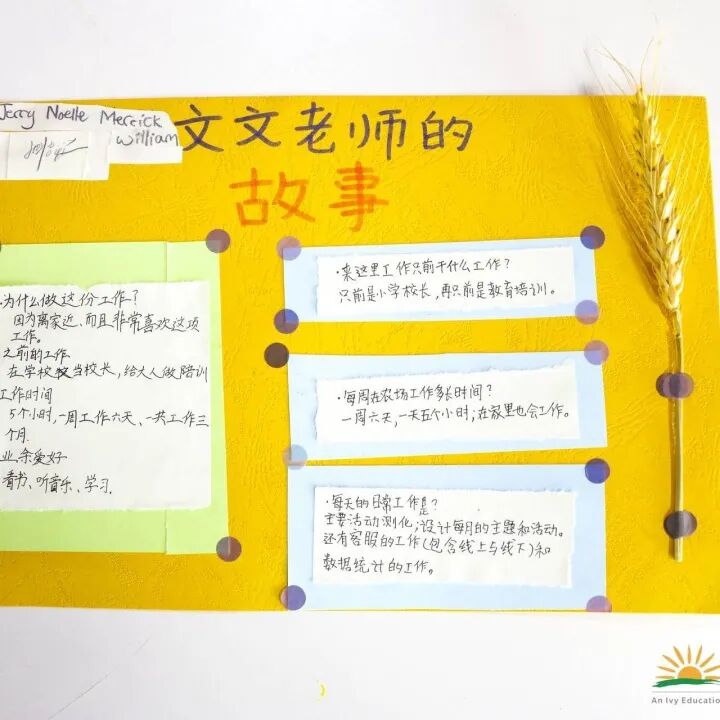 Jerry Noelle Merrick
William
文文老师的
故事
·为什么做这份工作?
因为离家近、而且非常喜欢这项
工作。
之前的工作
在学校当校长,给大人做陪训
工作时间
5个小时,一周工作六天、一共工作三
个月.
业余爱好
看书、听音乐、学习.
·来这里工作只前干什么工作?
只前是小学校长,再只前是教育培训。
·每周在农场工作多长时间?
一周六天,一天五个小时;在家里也会工作。
·每天的日常工作是?
主要活动测化;设计每月的主题和活动。
还有客服的工作(包含线上与线下)和
数据统计的工作。
An Ivy Education